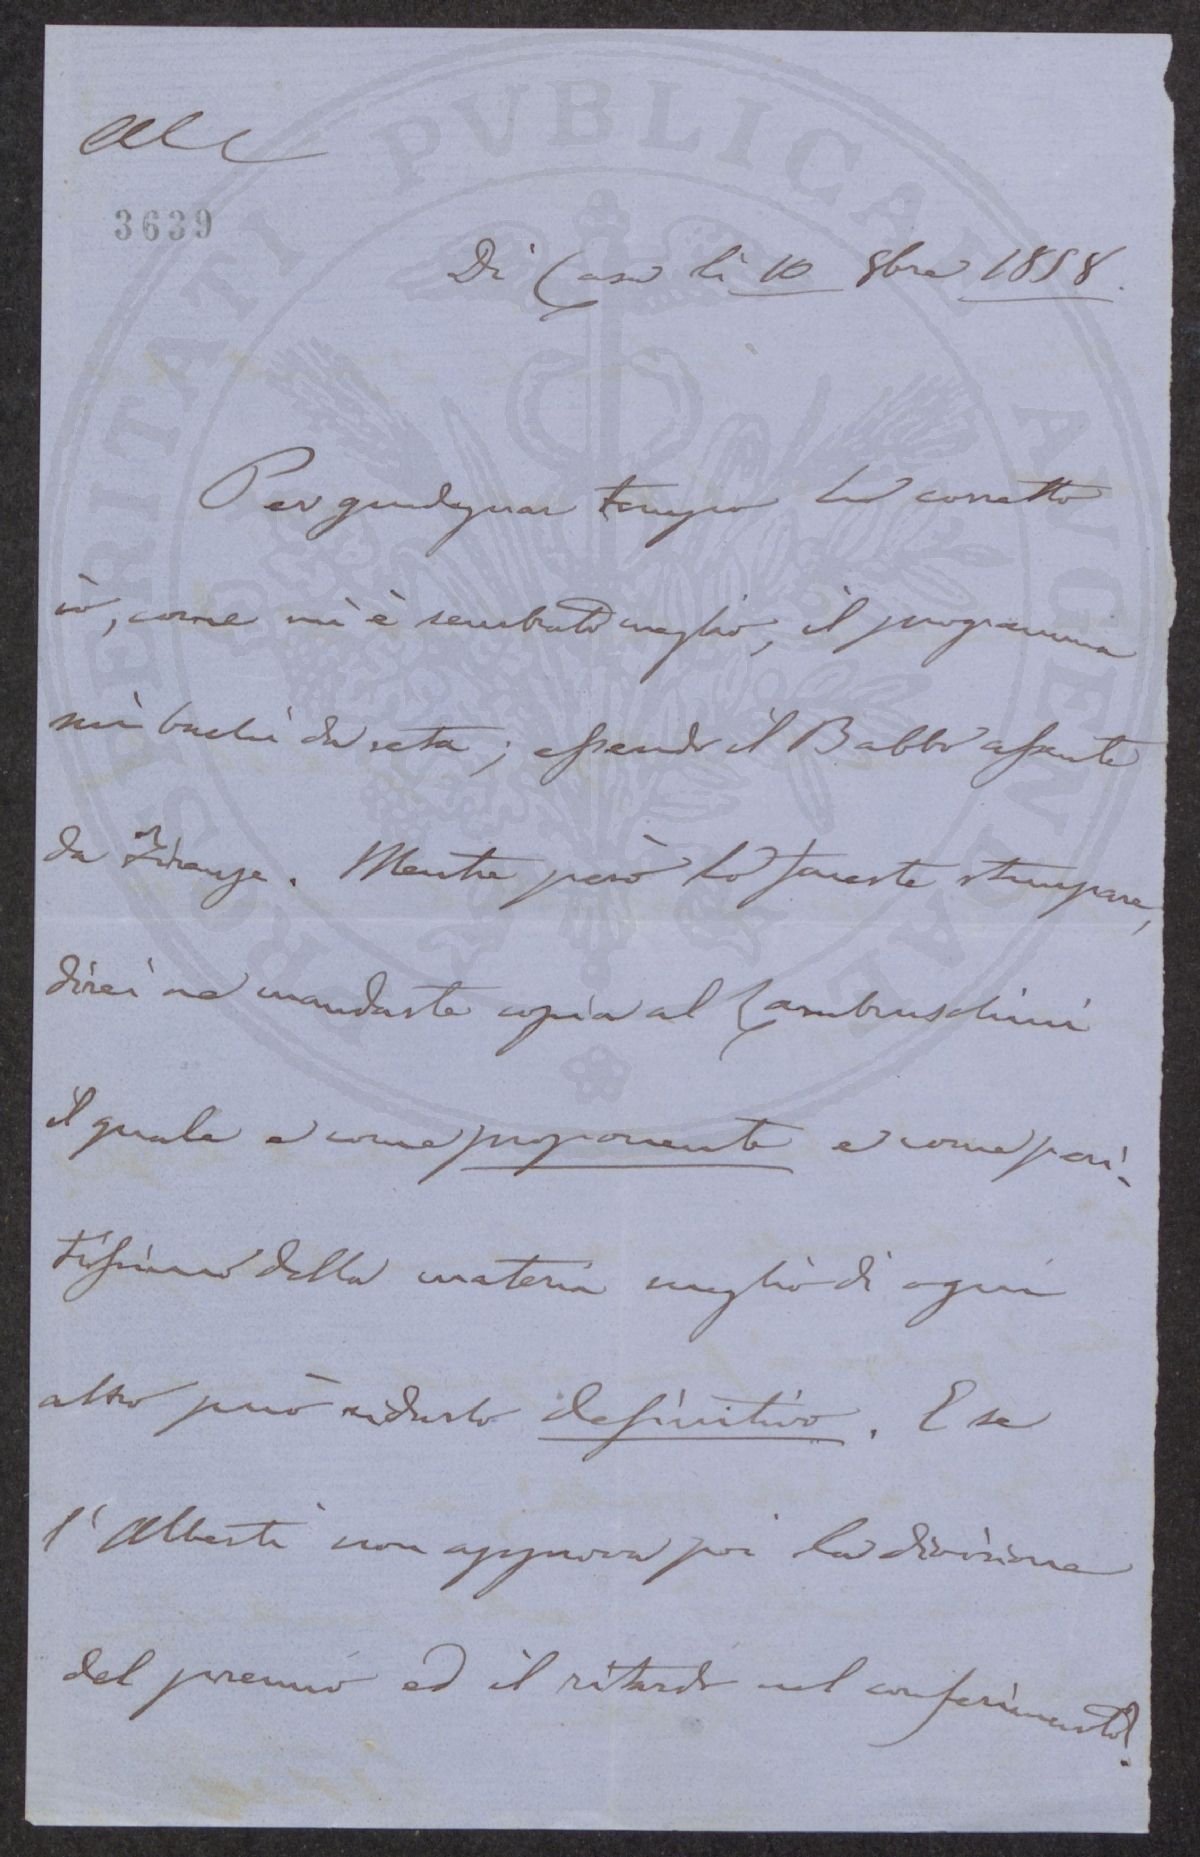 3639
Di Casa lì 10 8bre 1858.
Per guadagnar tempo ho corretto
io, come mi è sembrato meglio, il programma
sui bachi da seta; essendo il Babbo assente
da Firenze. Mentre però lo fareste stampare,
direi ne mandaste copia al Lambruschini
il quale e come proponente e come peri-
tissimo della materia meglio di ogni
altro può ridurlo definitivo. E se
l'Alberti non approva poi la divisione
del premio ed il ritardo nel conferimento?
PROSPERITATI PVBLICAE AVGENDAE